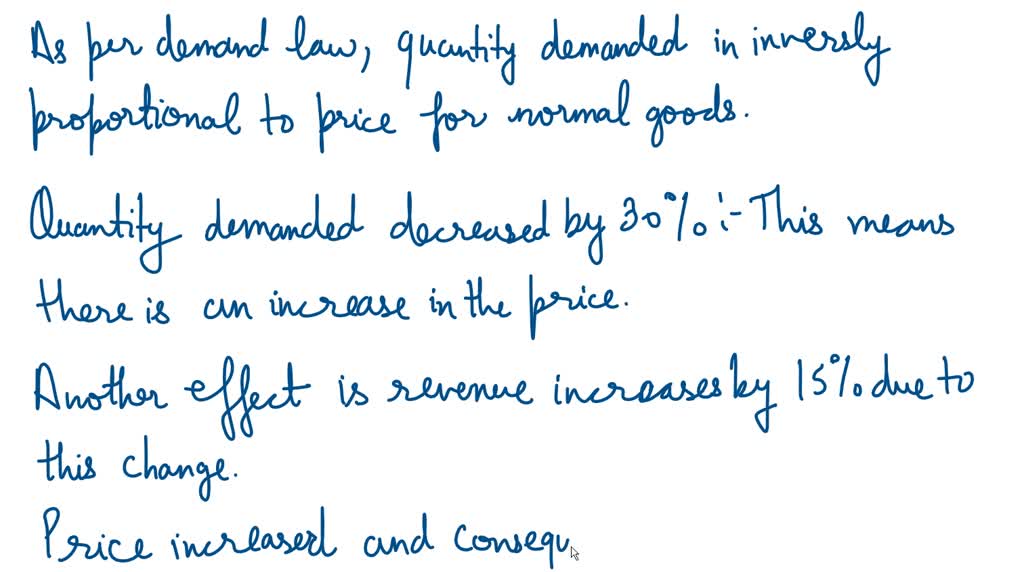 As per demand law, quantity demanded in inversly
proportional to price for normal goods.
Quantity demanded decreased by 30% :- This means
there is an increase in the price.
Another effect is revenue increases by 15% due to
this change.
Price increased and consequ